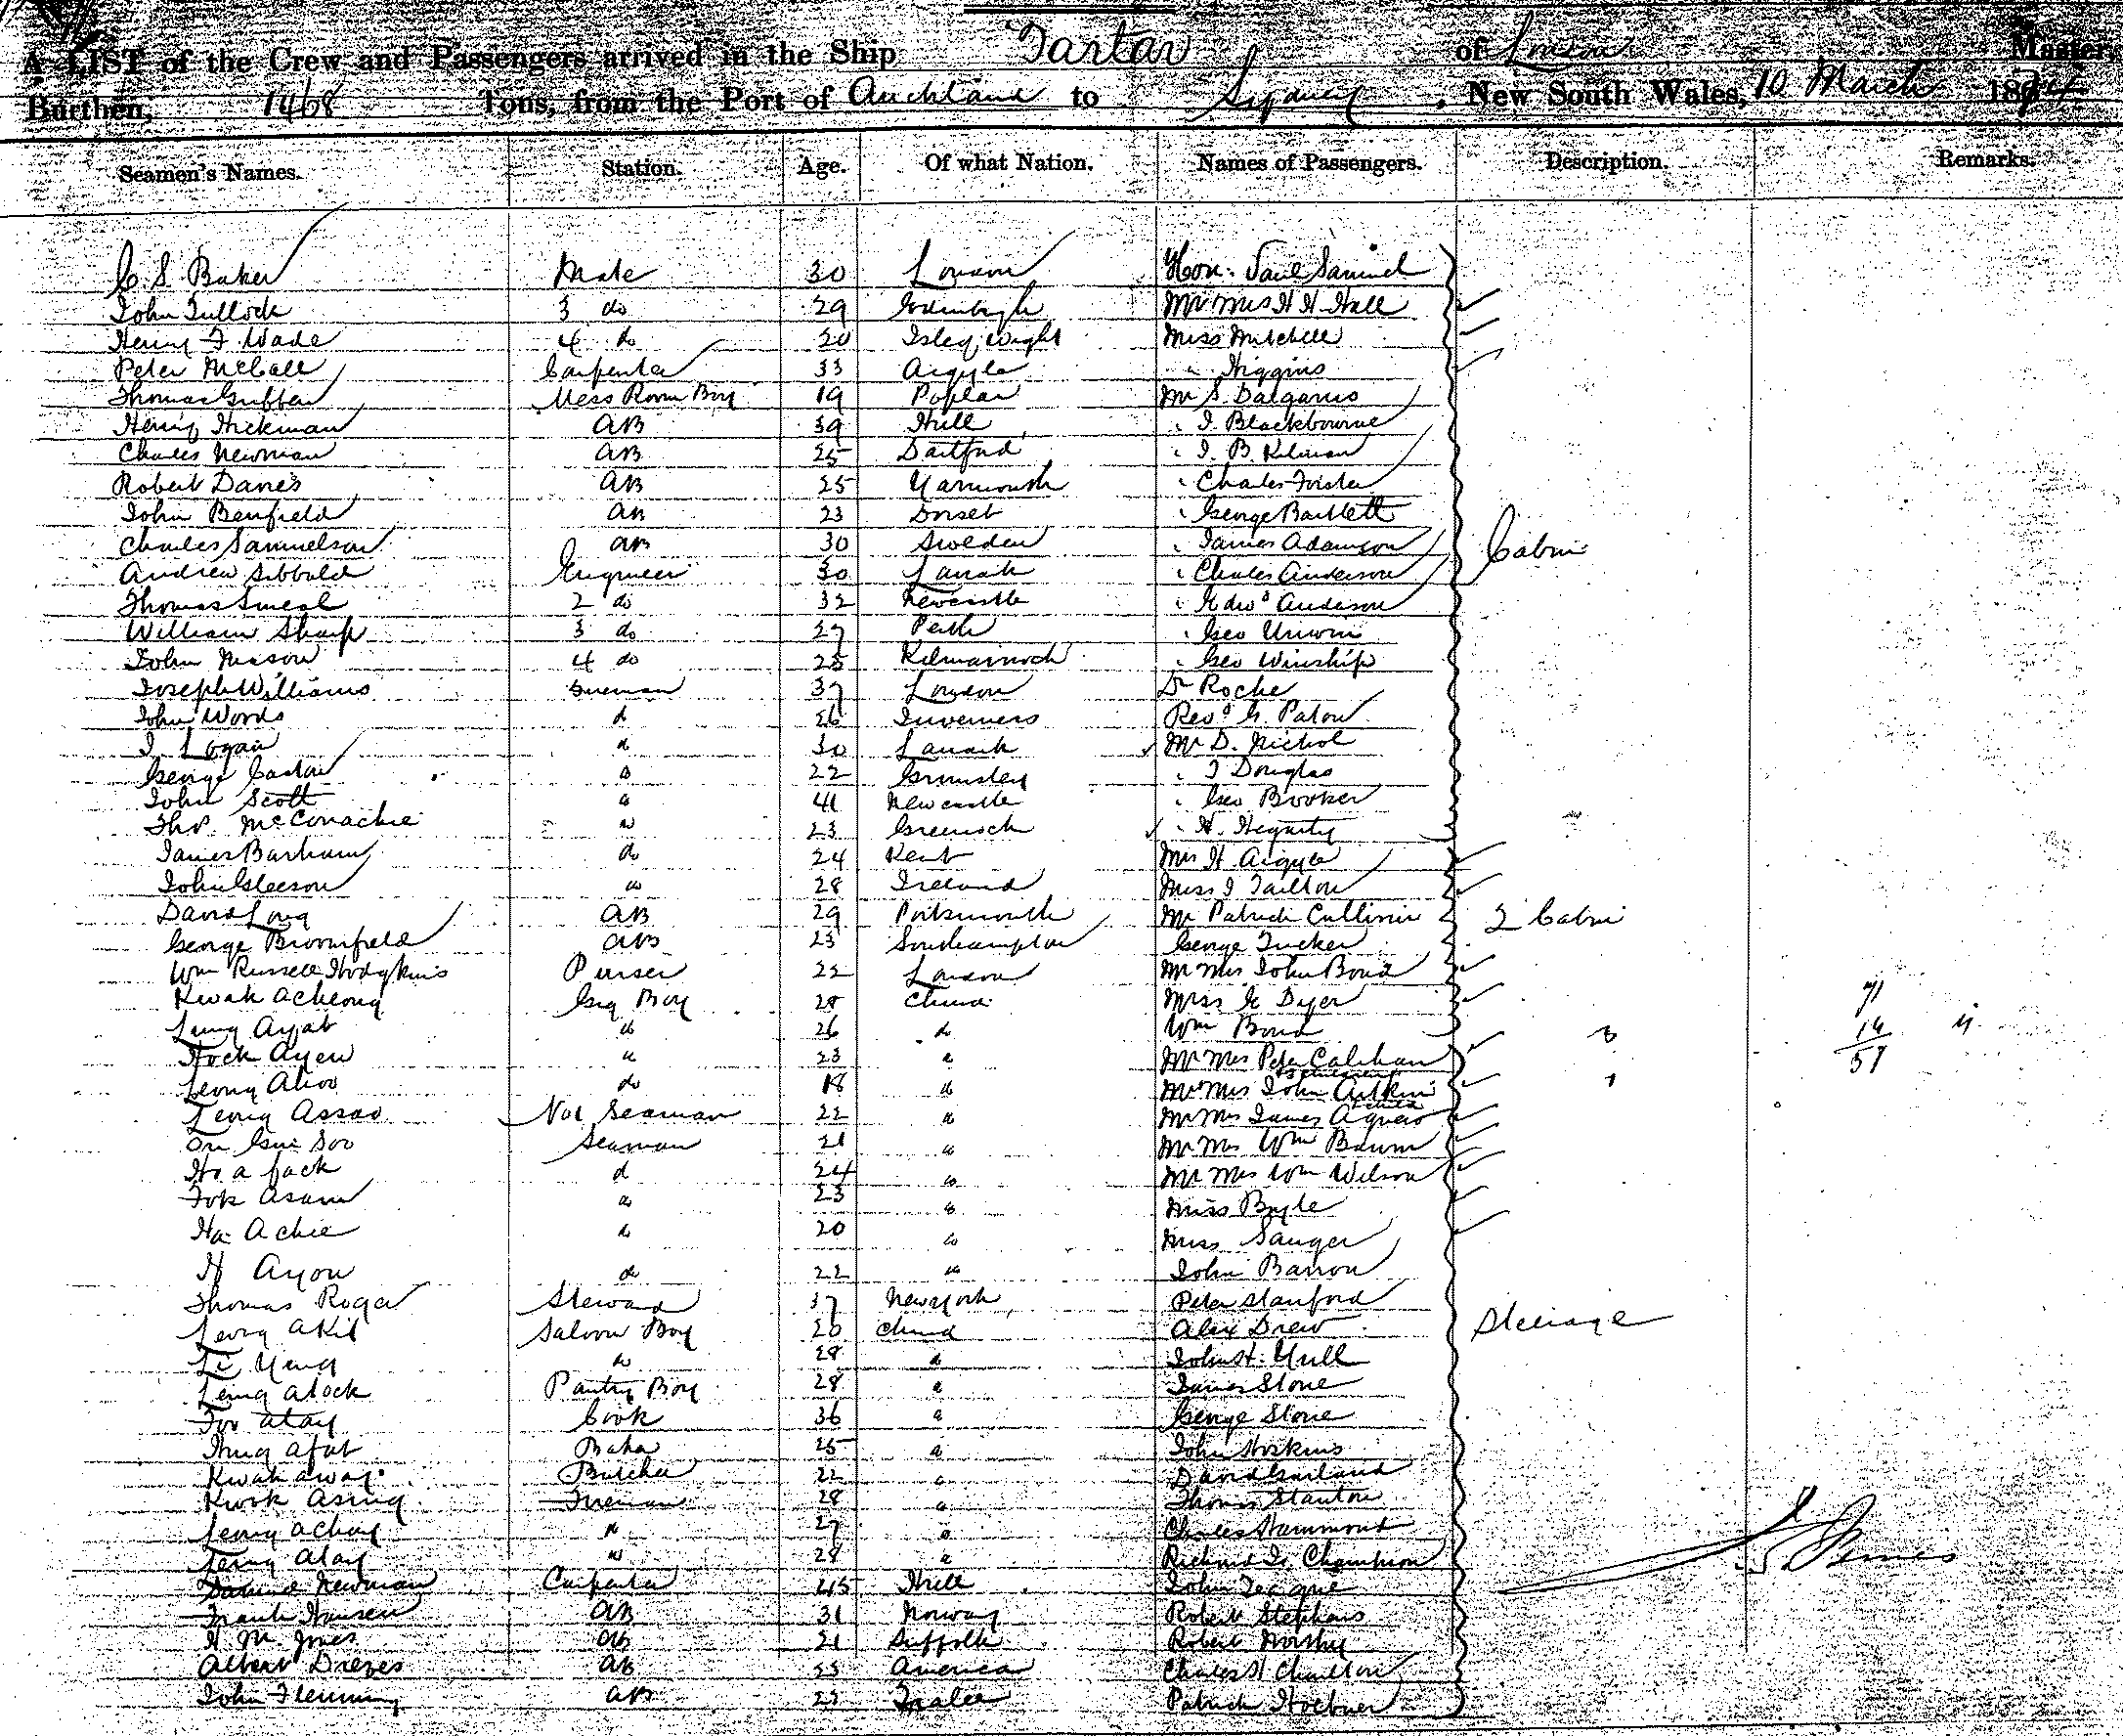 A LIST of the Crew and Passengers arrived in the Ship Tartar of London Master,
Burthen, 1468 Tons, from the Port of Auckland to Sydney, New South Wales, 10 March 1874
Seamen's Names. Station. Age. Of what Nation. Names of Passengers. Description. Remarks.
C S Baker Mate 30 London Hon. Saul Samuel
John Tullock 3 do 29 Edinburgh Mr Mrs H H Hall
Henry F Wade 4 do 20 Isle of Wight Miss Mitchell
Peter McCall Carpenter 33 Argyle " Higgins
Thomas Mess Room Boy 19 Poplar Mr S. Dalgarus
Henry Hickman AB 39 Hull " J. Blackbourne
Charles Newman AB 25 Dartford " J. B.
Robert Davies AB 25 Yarmouth " Charles Forster
John Benfield AB 23 Dorset " George Bartlett
Charles Samuelson AB 30 Sweden " James Adamson Cabin
Andrew Sibbald Engineer 30 Lanark " Charles Anderson
Thomas Smeal 2 do 32 Newcastle " Edwd Anderson
William Sharp 3 do 27 Perth " Geo Unwin
John Mason 4 do 25 Kilmarnock " Geo Winship
Joseph Williams Fireman 37 London Dr Roche
John Words d 26 Inverness Revd G. Paton
J. Logan d 30 Lanark Mr D. Nichol
George Caston d 22 Grimsley " J Douglas
John Scott d 41 Newcastle " Geo Booker
Thos McConachie d 23 Greenock " H. Hegarty
James Barham do 24 Kent Mrs H. Argyle
John Gleeson do 28 Ireland Miss J Tailton
David Long AB 29 Portsmouth Mr Patrick Cullinin 2 Cabin
George Broomfield AB 23 Southampton George Tucker
Wm Russell Hodgkins Purser 22 London Mr Mrs John Bond
Kwak Acheong Gig Boy 28 China Miss E Dyer 71
Leung Ayat do 26 do Wm Bond 14
Hock Ayew do 23 do Mr Mrs Peter Calahan 57
Leong Ahoo do 18 do Mr Mrs John Aitkin
Leong Assoo No 1 Seaman 22 do Mr Mrs James Agnew
On Gui Soo Seaman 21 do Mr Mrs Wm Baum
Ho a fack d 24 do Mr Mrs Wm Wilson
Fok Asam d 23 do Miss Boyle
Ha Achie d 20 do Miss Sanger
H Ayou d 22 do John Barron
Thomas Roger Steward 37 New York Peter Stanford
Leong Akit Saloon Boy 20 China Alex Drew Steerage
Li Yeng do 28 d John H. Yuill
Leong Alock Pantry Boy 28 d James Stone
Foo Atay Cook 36 d George Stone
Afat Baker 25 d John Hoskins
Kwak Away Butcher 22 d David Garland
Kwok Asing Fireman 28 d Thomas Stanton
Leong Achoy d 27 d Charles Hammond
Leong Atay d 28 d Richard G. Champion
Newman Carpenter 45 Hull John Teague
Frank Hansen AB 31 Norway Robert Stephens
H M Jones AB 21 Suffolk Robert Worthy
Albert Dreves AB 23 America Charles H Charlton
John Flemming AB 23 Tralee Patrick